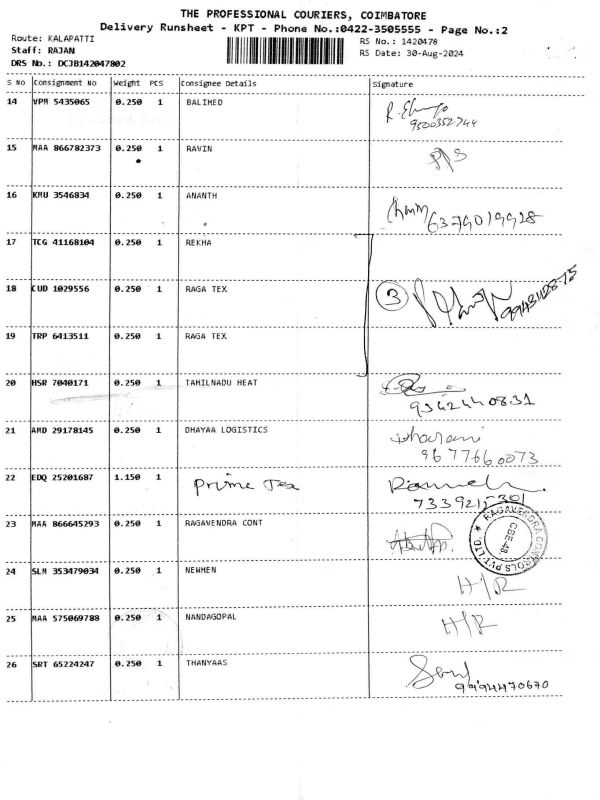 THE PROFESSIONAL COURIERS, COIMBATORE
Delivery Runsheet - KPT - Phone No.:0422-3505555 - Page No.:2
Route: KALAPATTI
RS No.: 1420478
Staff: RAJAN
RS Date: 30-Aug-2024
DRS No.: DCJB142047802
S No Consignment No Weight PCS Consignee Details Signature
14 VPM 5435065 0.250 1 BALIMED
9500352744
15 MAA 866782373 0.250 1 RAVIN
16 KMU 3546834 0.250 1 ANANTH
6379019928
17 TCG 41168104 0.250 1 REKHA
18 CUD 1029556 0.250 1 RAGA TEX 3
19 TRP 6413511 0.250 1 RAGA TEX
20 HSR 7040171 0.250 1 TAMILNADU HEAT
9342440831
21 AMD 29178145 0.250 1 DHAYAA LOGISTICS Dharani
9677660073
22 EDQ 25201687 1.150 1 Prime Tex
7339215301
23 MAA 866645293 0.250 1 RAGAVENDRA CONT
RAGAVENDRA CONTROLS PVT LTD. ★
CBE-48.
24 SLM 353479034 0.250 1 NEWMEN H/R
25 MAA 575069788 0.250 1 NANDAGOPAL H/R
26 SRT 65224247 0.250 1 THANYAAS
9994470670